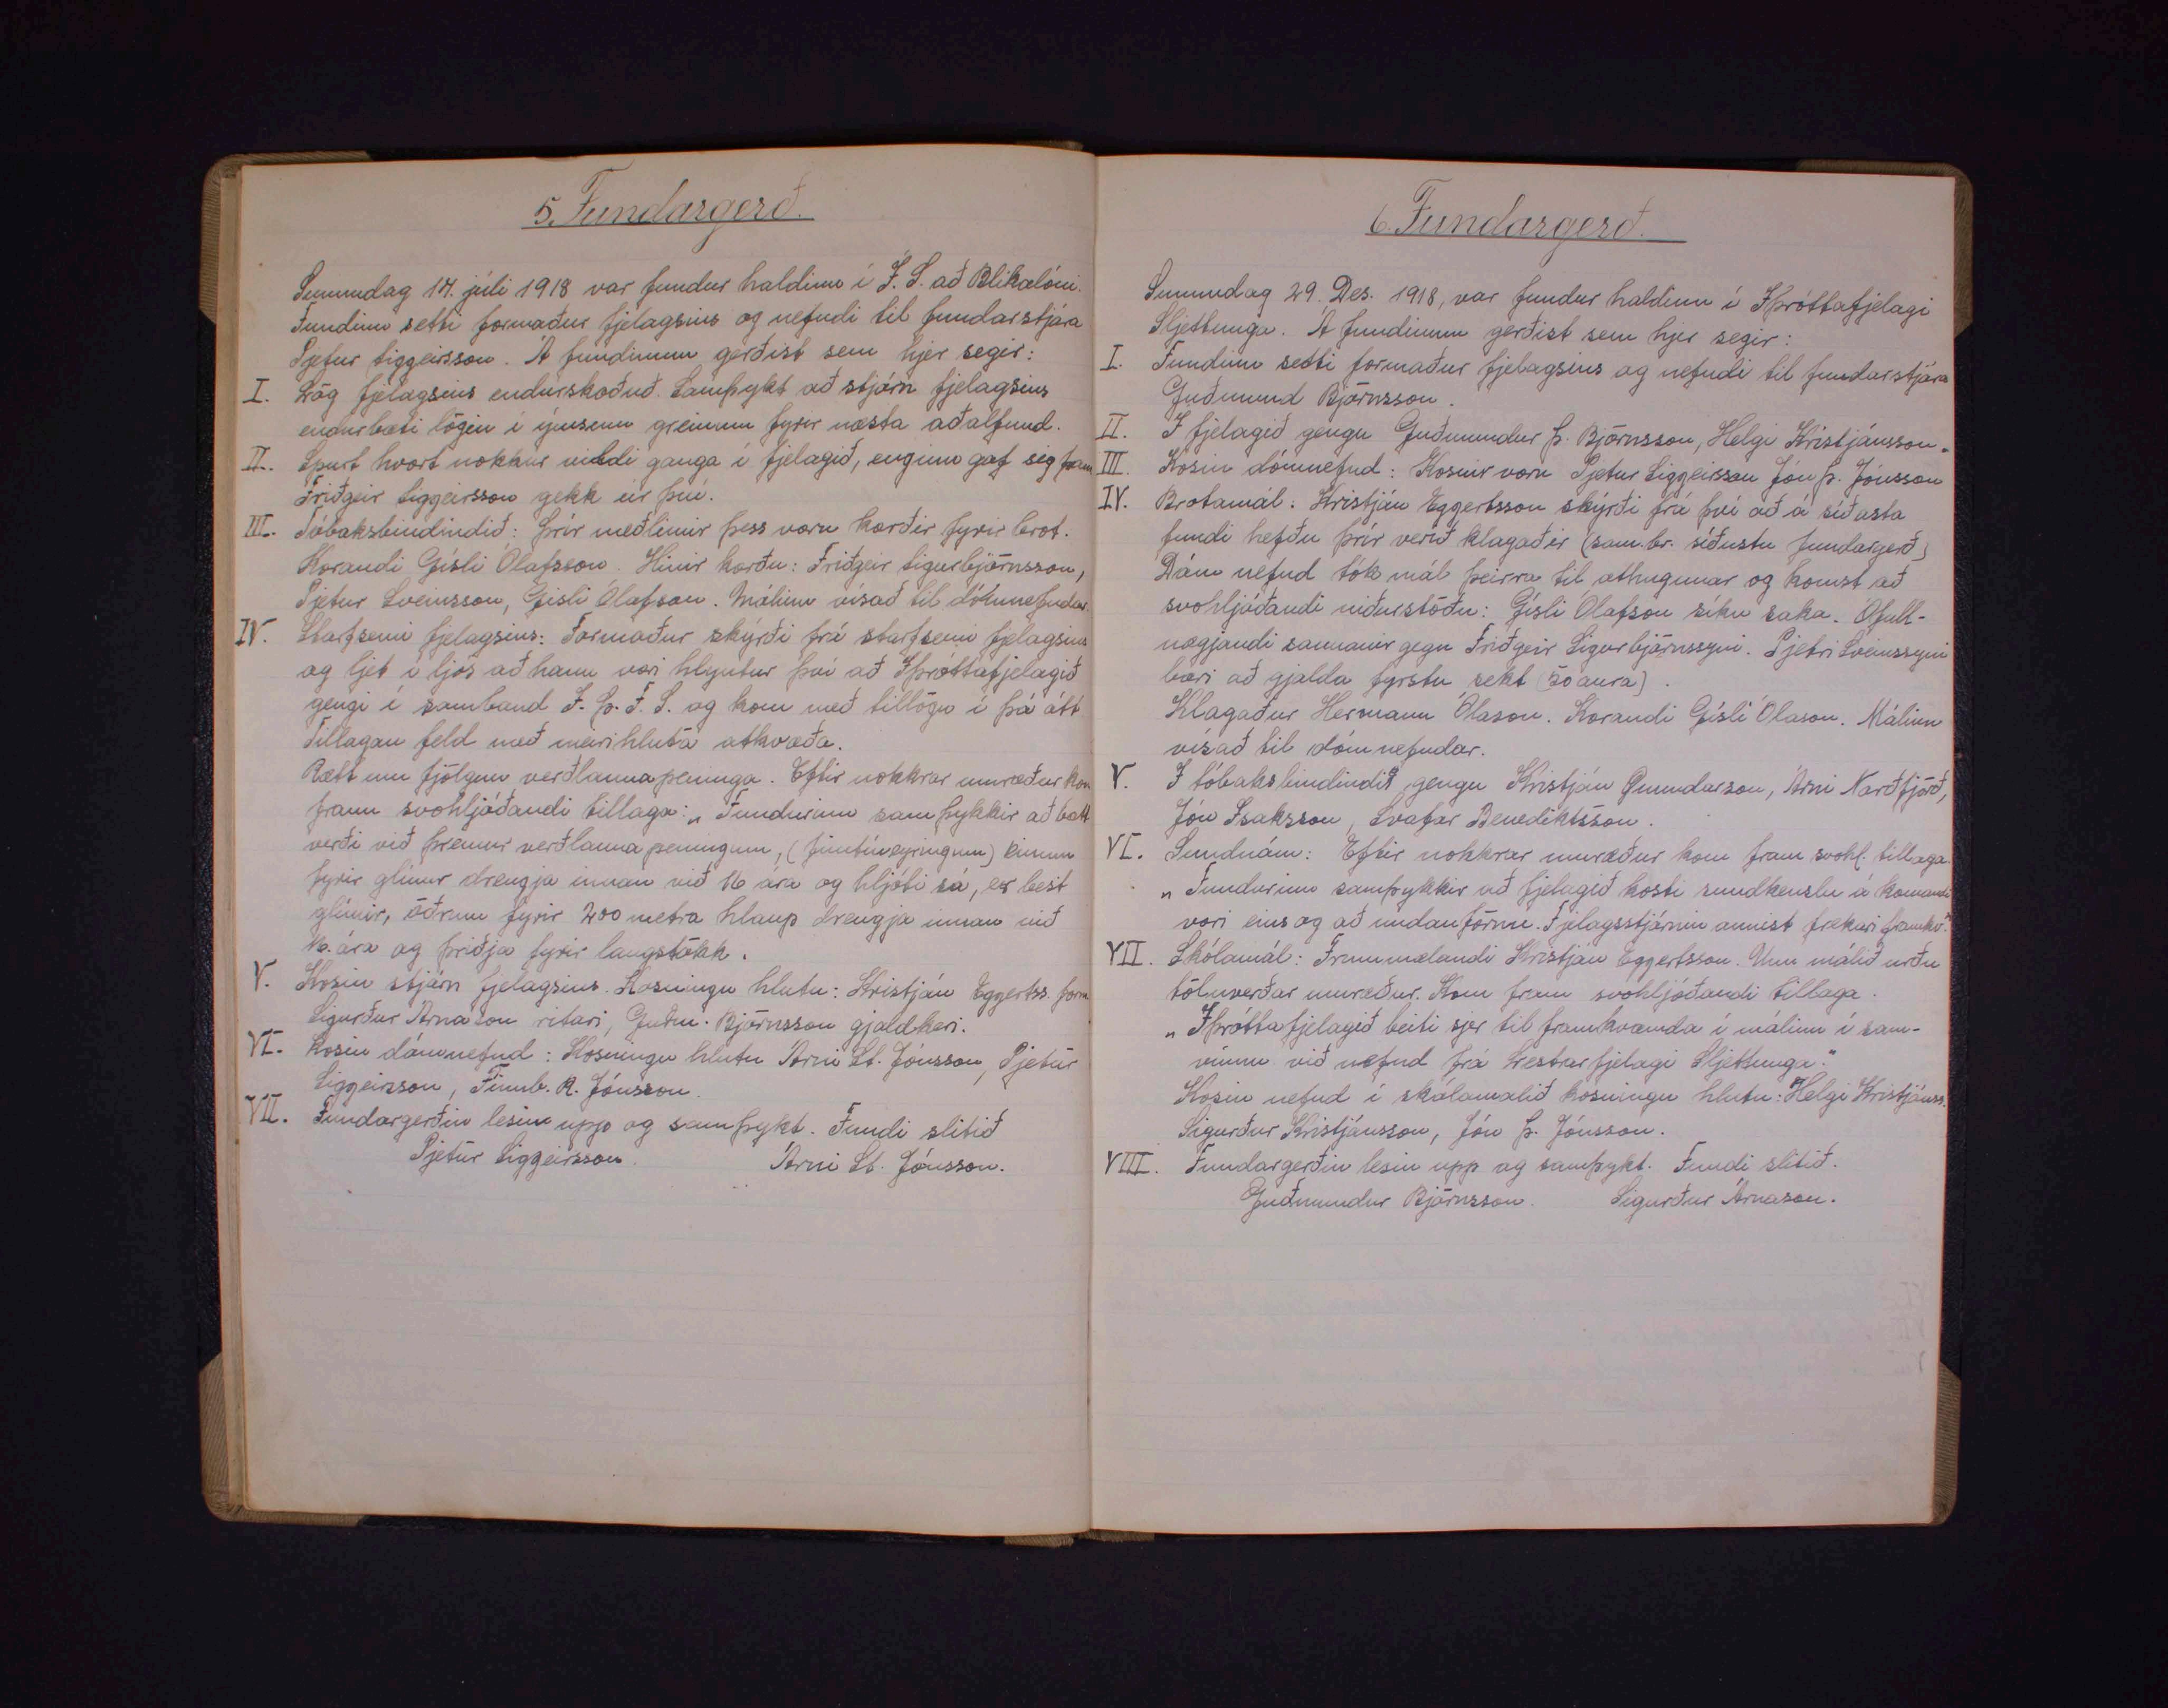 5. Fundargerð.
Sunnudag 14. júlí 1918 var fundur haldinn í Í. S. að Blikalóni.
Fundinn setti formaður fjelagsins og nefndi til fundarstjóra
Pjetur Siggeirsson. Á fundinum gerðist sem hjer segir:
I. Lög fjelagsins endurskoðuð. Samþykt að stjórn fjelagsins
endurbæti lögin í ýmsum greinum fyrir næsta aðalfund.
II. Spurt hvort nokkur vildi ganga í fjelagið, enginn gaf sig fram
Friðgeir Siggeirsson gekk úr því.
III. Tóbaksbindindið: Þrír meðlimir þess voru kærðir fyrir brot.
Kærandi Gísli Ólafsson. Hinir kærðu: Friðgeir Sigurbjörnsson,
Pjetur Sveinsson, Gísli Ólafson. Málinu vísað til dómnefndar.
IV. Starfsemi fjelagsins: Formaður skýrði frá starfsemi fjelagsins
og ljet í ljós að hann væri hlyntur því að Íþróttafjelagið
gengi í samband Í. Þ. F. S. og kom með tillögu í þá átt.
Tillagan feld með meirihluta atkvæða.
Rætt um fjölgun verðlaunapeninga. Eftir nokkrar umræður kom
fram svohljóðandi tillaga: „Fundurinn samþykkir að bætt
verði við þremur verðlaunapeningum, (fimtíueyringum) einum
fyrir glímur drengja innan við 16 ára og hljóti sá, er best
glímir, öðrum fyrir 200 metra hlaup drengja innan við
16. ára og þriðja fyrir langstökk.
V. Kosin stjórn fjelagsins. Kosningu hlutu: Kristján Eggertss. form
Sigurður Árnason ritari, Guðm. Björnsson gjaldkeri.
VI. Kosin dómnefnd: Kosningu hlutu Árni St. Jónsson, Pjetur
Siggeirsson, Finnb. R. Jónsson.
VII. Fundargerðin lesin upp og samþykt. Fundi slitið
Pjetur Siggeirsson. Árni St. Jónsson.
6. Fundargerð.
Sunnudag 29. Des. 1918, var fundur haldinn í Íþróttafjelagi
Sljettunga. Á fundinum gerðist sem hjer segir:
I. Fundinn setti formaður fjelagsins og nefndi til fundarstjóra
Guðmund Björnsson.
II. Í fjelagið gengu Guðmundur Þ. Björnsson, Helgi Kristjánsson.
III. Kosin dómnefnd: Kosnir voru Pjetur Siggeirsson Jón Þ. Jónsson
IV. Brotamál: Kristján Eggertsson skýrði frá því að á síðasta
fundi hefðu þrír verið klagaðir (sam.br. síðustu fundargerð)
Dóm nefnd tók mál þeirra til athugunar og komst að
svohljóðandi niðurstöðu: Gísli Ólafson síkn saka. Ófull-
nægjandi sannanir gegn Friðgeir Sigurbjörnssyni. Pjetri Sveinssyni
bæri að gjalda fyrstu sekt (50 aura).
Klagaður Hermann Ólason. Kærandi Gísli Ólason. Málinu
vísað til dómnefndar.
V. Í tóbaksbindindið gengu Kristján Ömundarson, Árni Norðfjörð,
Jón Ísaksson, Svafar Benediktsson.
VI. Sundnám: Eftir nokkrar umræður kom fram svohl. tillaga
„Fundurinn samþykkir að fjelagið kosti sundkenslu á komandi
vori eins og að undanförnu. Fjelagsstjórnin annist frekari framkv."
VII. Skólamál: Frummælandi Kristján Eggertsson. Um málið urðu
töluverðar umræður. Kom fram svohljóðandi tillaga.
„Íþróttafjelagið beiti sjer til framkvæmda í málinu í sam-
vinnu við nefnd frá Lestrarfjelagi Sljettunga".
Kosin nefnd í skólamálið kosningu hlutu: Helgi Kristjánss.
Sigurður Kristjánsson, Jón Þ. Jónsson.
VIII. Fundargerðin lesin upp og samþykt. Fundi slitið.
Guðmundur Björnsson. Sigurður Árnason.